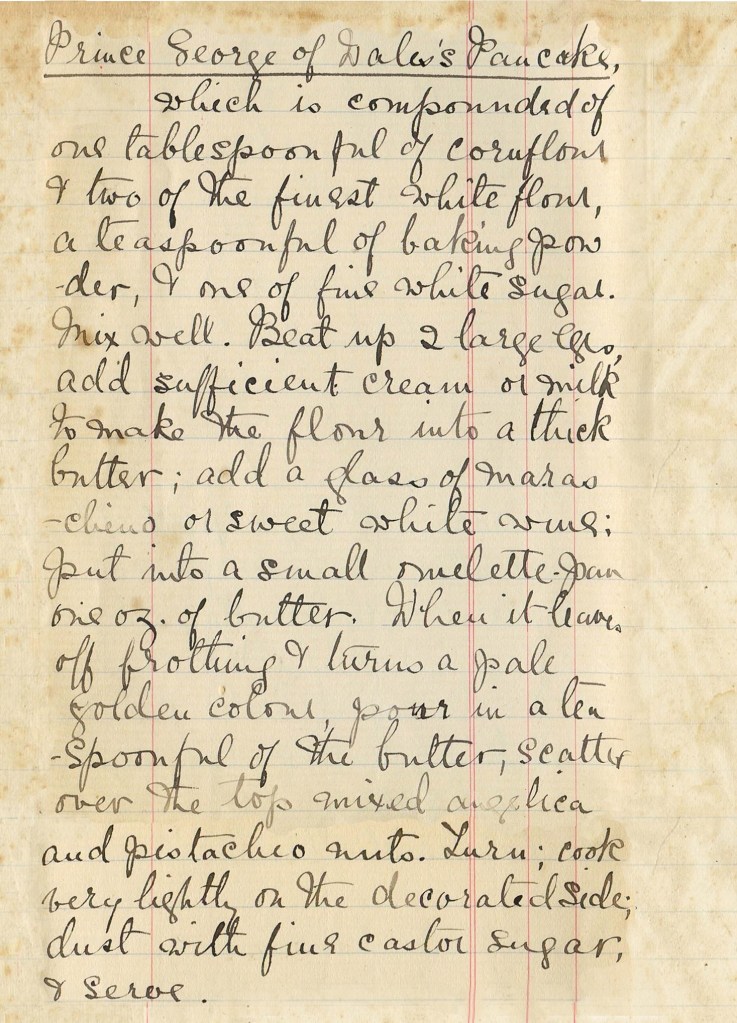 Prince George of Wales's Pancake,
which is compounded of
one tablespoonful of cornflour
& two of the finest white flour,
a teaspoonful of baking pow
-der, & one of fine white sugar.
Mix well. Beat up 2 large eggs,
add sufficient cream or milk
to make the flour into a thick
butter; add a glass of maras
-chino or sweet white wine;
put into a small omelette-pan
one oz. of butter. When it leaves
off frothing & turns a pale
golden colour, pour in a tea
-spoonful of the butter, scatter
over the top mixed angelica
and pistachio nuts. Turn; cook
very lightly on the decorated side;
dust with fine castor sugar,
& serve.